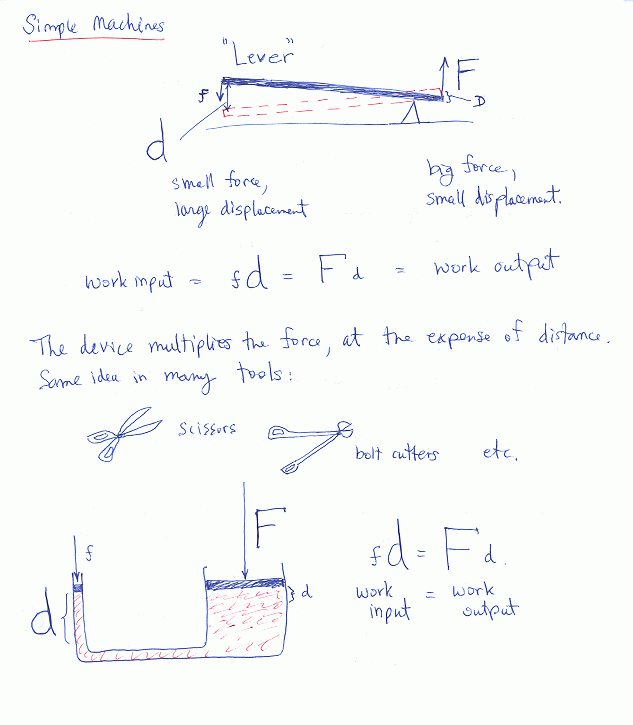 Simple Machines
"Lever"
f
F
D
d
small force,
large displacement
big force,
small displacement.
work input = fd = Fd = work output
The device multiplies the force, at the expense of distance.
Same idea in many tools:
scissors
bolt cutters
etc.
f
F
d
d
fd = Fd.
work input = work output